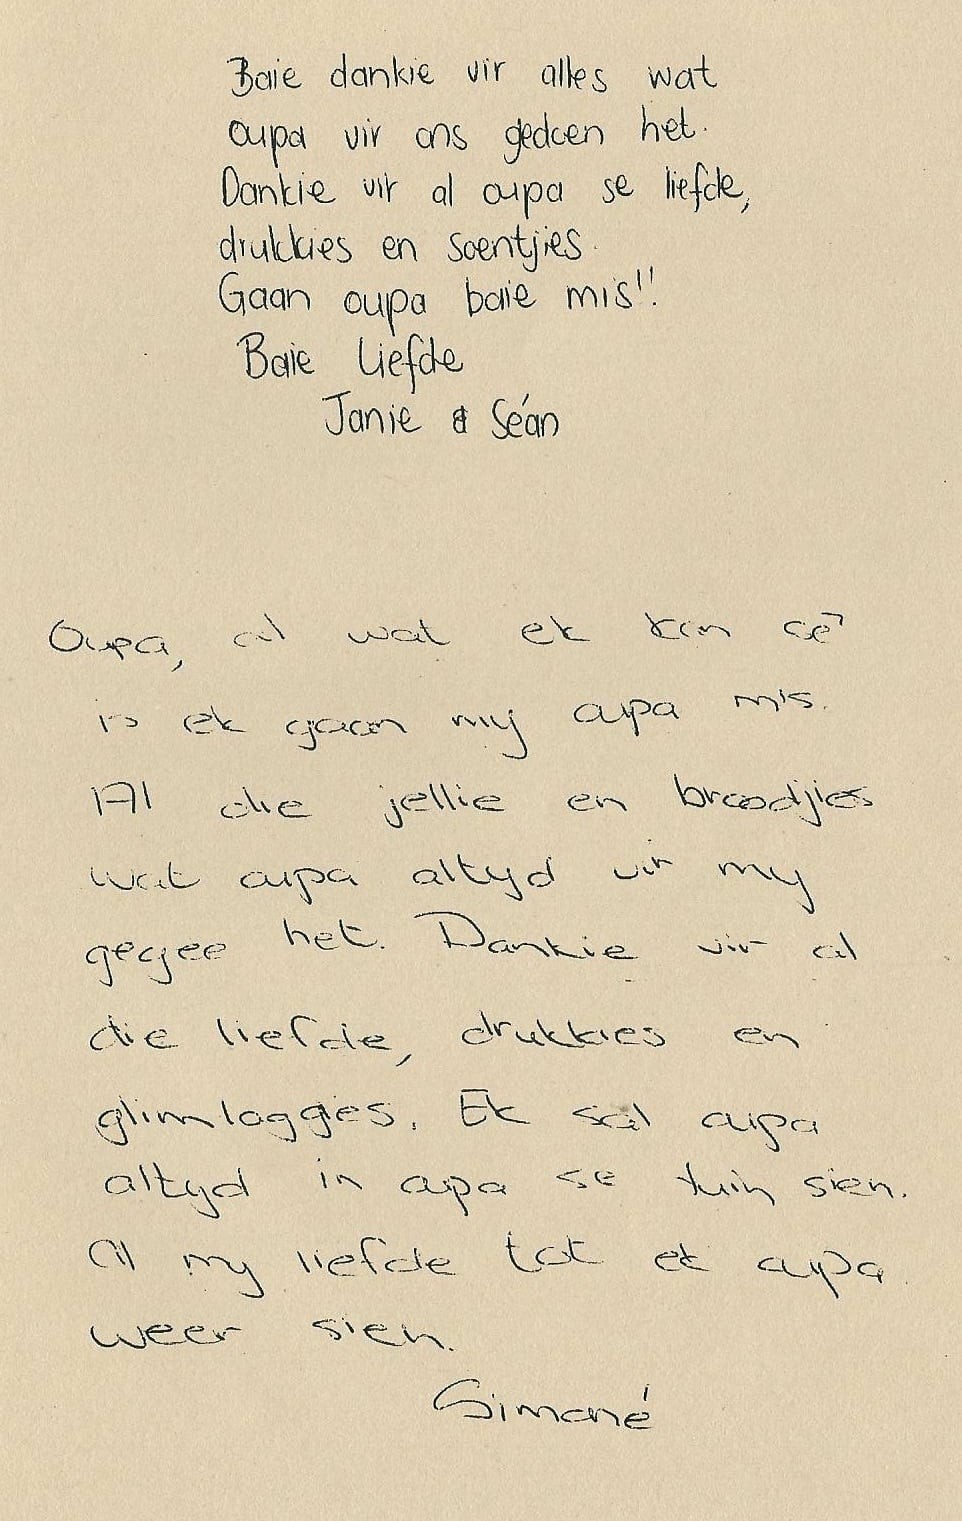 Baie dankie vir alles wat
oupa vir ons gedoen het.
Dankie vir al oupa se liefde,
drukkies en soentjies.
Gaan oupa baie mis!!
Baie Liefde
Janie & Seán
Oupa, al wat ek kan sê
is ek gaan my oupa mis.
Al die jellie en broodjies
wat oupa altyd vir my
gegee het. Dankie vir al
die liefde, drukkies en
glimlagges. Ek sal oupa
altyd in oupa se tuin sien.
Al my liefde tot ek oupa
weer sien.
Simoné